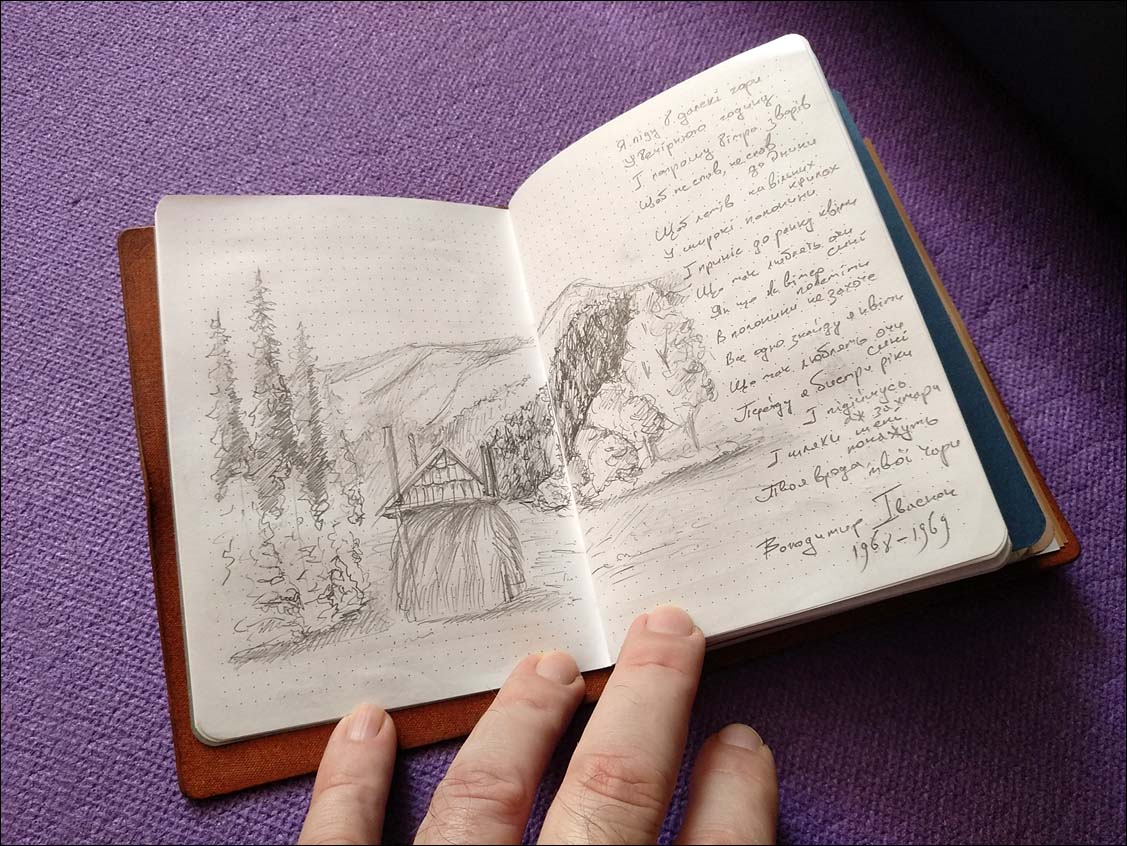 Я піду в далекі гори
У вечірнюю годину
І попрошу вітра зворів
Щоб не спав, не спав
до днини
Щоб летів на вільних
крилах
у широкі полонини
І приніс до ранку квіти
Що так люблять очі
сині
Як що й вітер
полетіти
В полонини не захоче
Все одно знайду я квіти
Що так люблять очі
сині
Перейду я бистрі ріки
І піднімусь
аж за хмари
І шляхи мені
покажуть
Твоя врода, твої чари
Володимир Івасюк
1968-1969